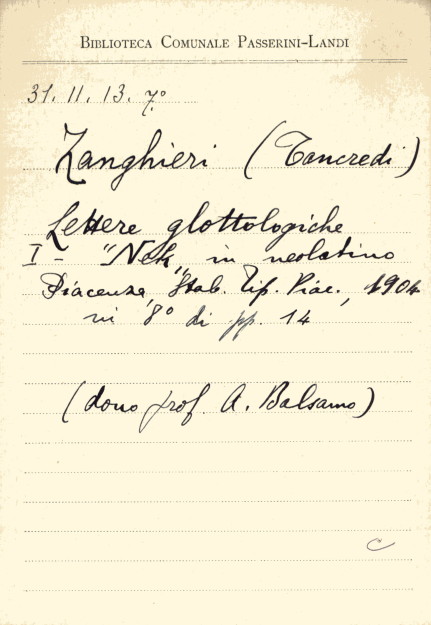 BIBLIOTECA COMUNALE PASSERINI-LANDI
31. 11. 13. 7º
Zanghieri (Tancredi)
Lettere glottologiche
I - "Nek" in neolatino
Piacenza, Stab. Tip. Piac., 1904
in 8º di pp. 14
(dono prof. A. Balsamo)
C